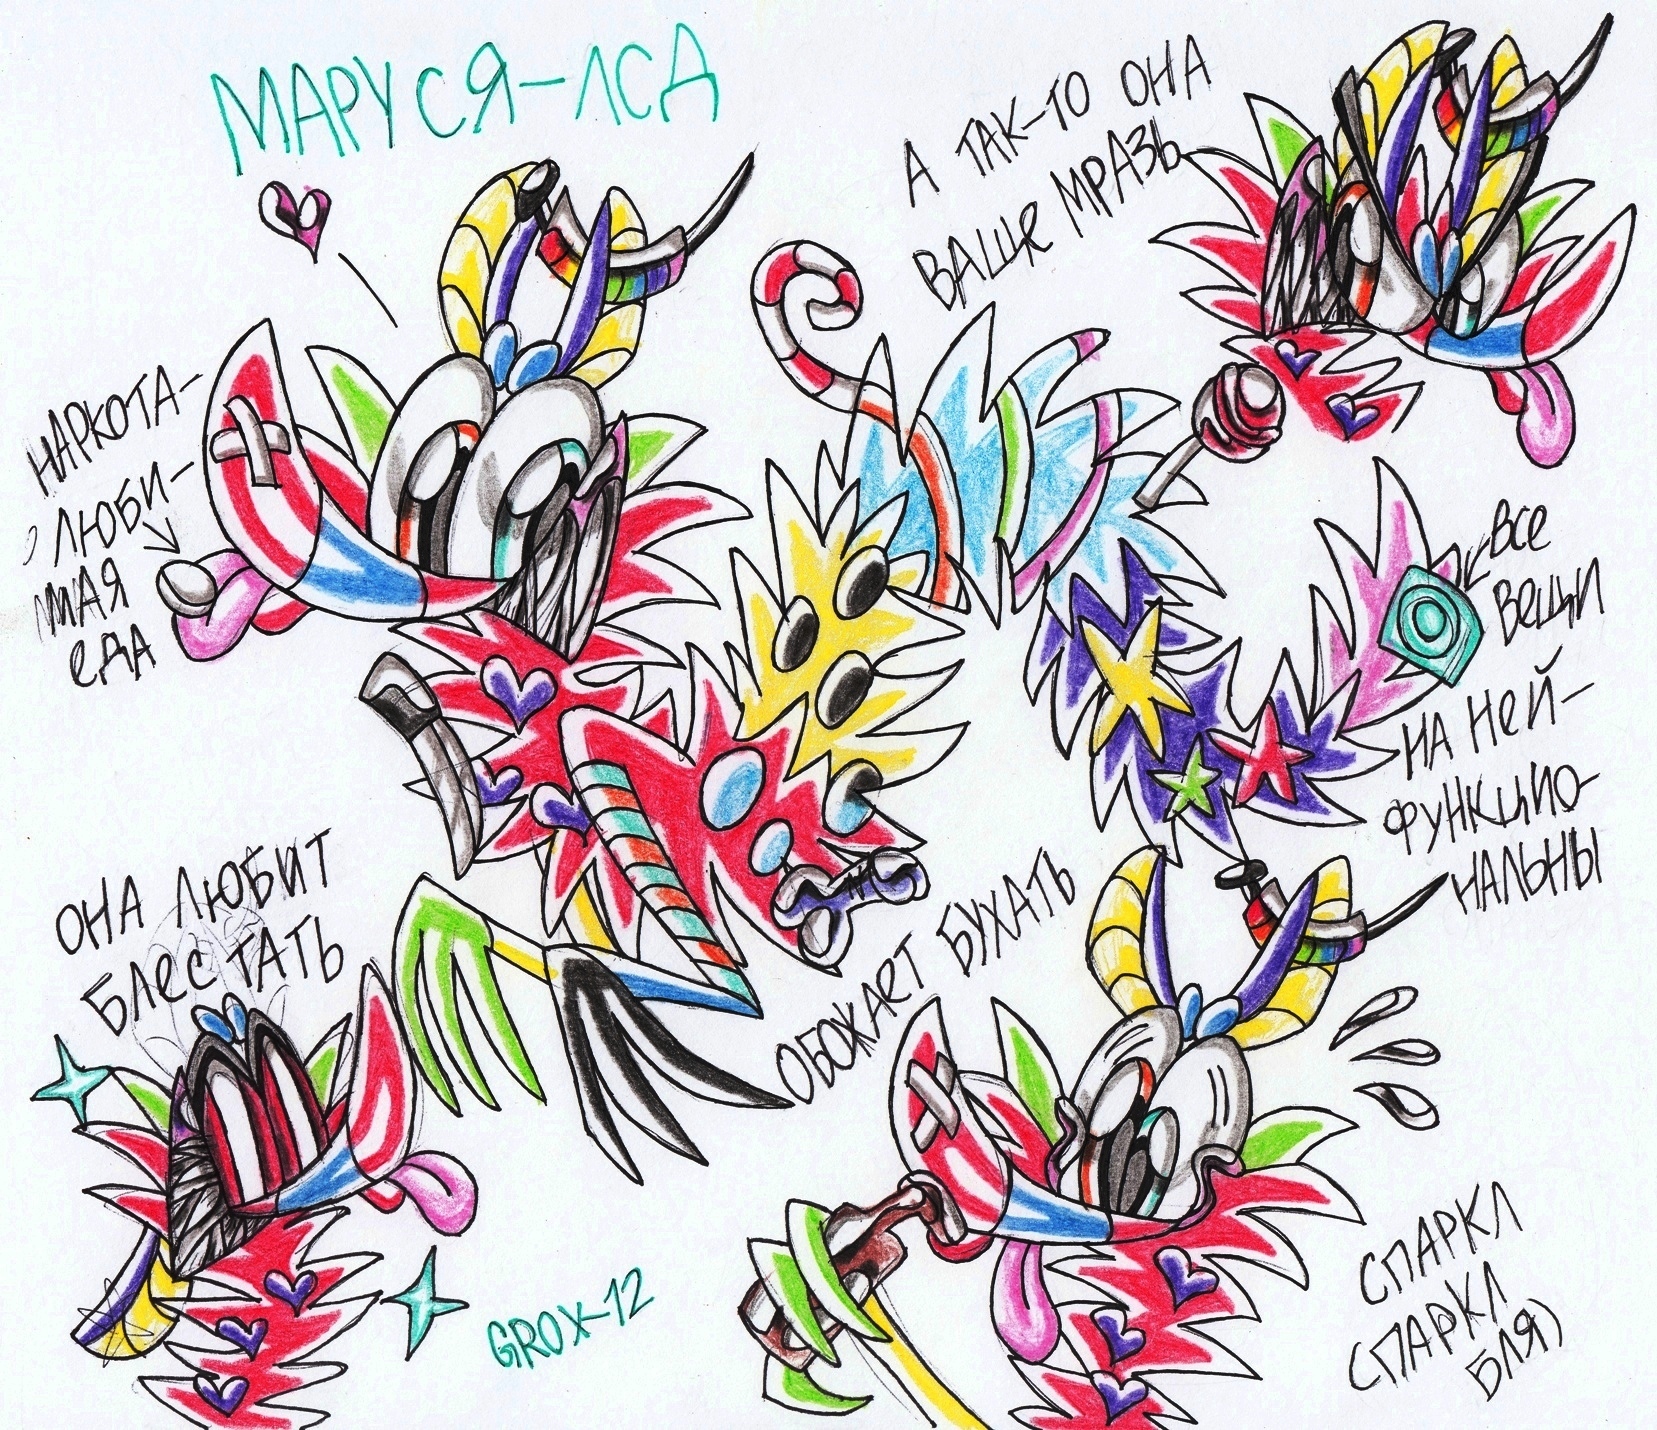 МАРУСЯ-ЛСД
А ТАК-ТО ОНА
ВАЩЕ МРАЗЬ
НАРКОТА-
ЛЮБИ-
МАЯ
ЕДА
ВСЕ
ВЕЩИ
НА НЕЙ-
ФУНКЦИО-
НАЛЬНЫ
ОНА ЛЮБИТ
БЛЕСТАТЬ
ОБОЖАЕТ БУХАТЬ
GROX-12
СПАРКЛ
СПАРКЛ
БЛЯ)